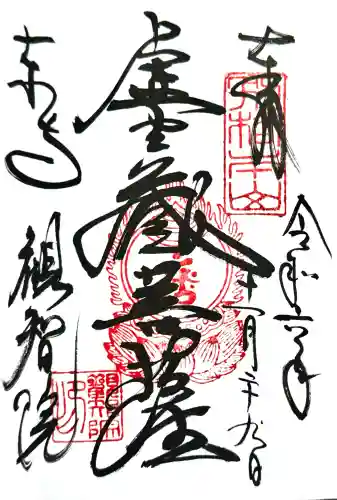 奉拝
令和六年
十一月二十九日
虚空蔵菩薩
東寺
観智院